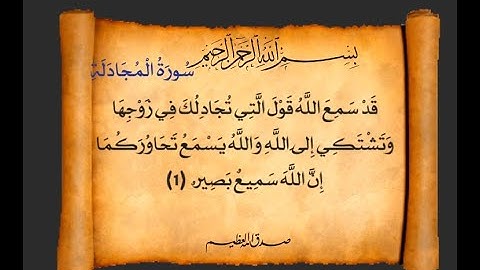 بِسْمِ اللَّهِ الرَّحْمَٰنِ الرَّحِيمِ
سُورَةُ الْمُجَادَلَة
قَدْ سَمِعَ اللَّهُ قَوْلَ الَّتِي تُجَادِلُكَ فِي زَوْجِهَا
وَتَشْتَكِي إِلَى اللَّهِ وَاللَّهُ يَسْمَعُ تَحَاوُرَكُمَا
إِنَّ اللَّهَ سَمِيعٌ بَصِيرٌ (1)
صدق الله العظيم